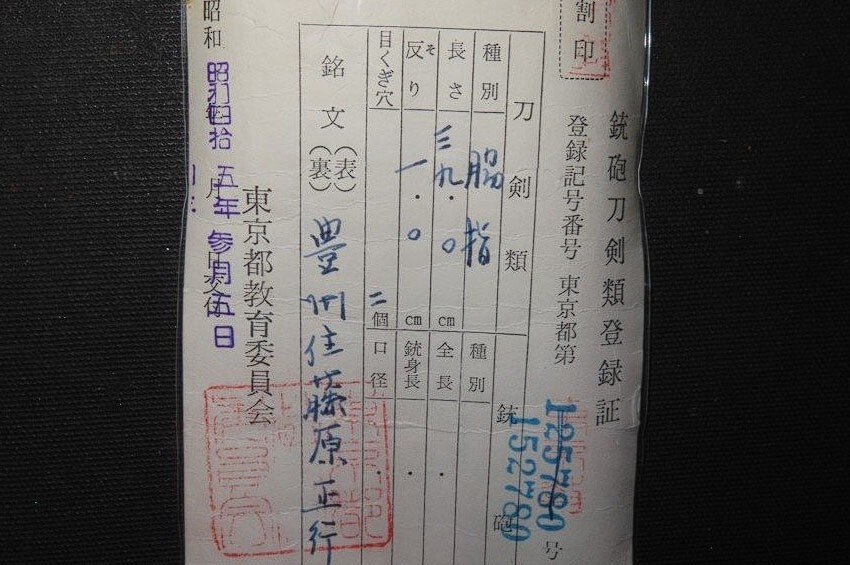 割印
銃砲刀剣類登録証
登録記号番号 東京都第 125780 号
152780
刀剣類
銃砲
種別 脇指
種別
長さ 三九.〇 cm
全長
反り 一.〇 cm
銃身長
目くぎ穴 二個
口径
銘文(表)(裏) 豊州住藤原正行
東京都教育委員会
昭和 年 月 日交付
昭和四拾五年参月五日